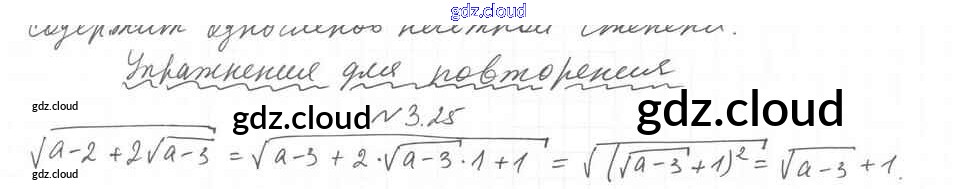 gdz.cloud
содержит одночленов нечётной степени.
Упражнения для повторения
gdz.cloud
gdz.cloud
№ 3.25
gdz.cloud
√(a-2+2√(a-3)) = √(a-3+2·√(a-3)·1+1) = √((√(a-3)+1)²) = √(a-3)+1.
gdz.cloud